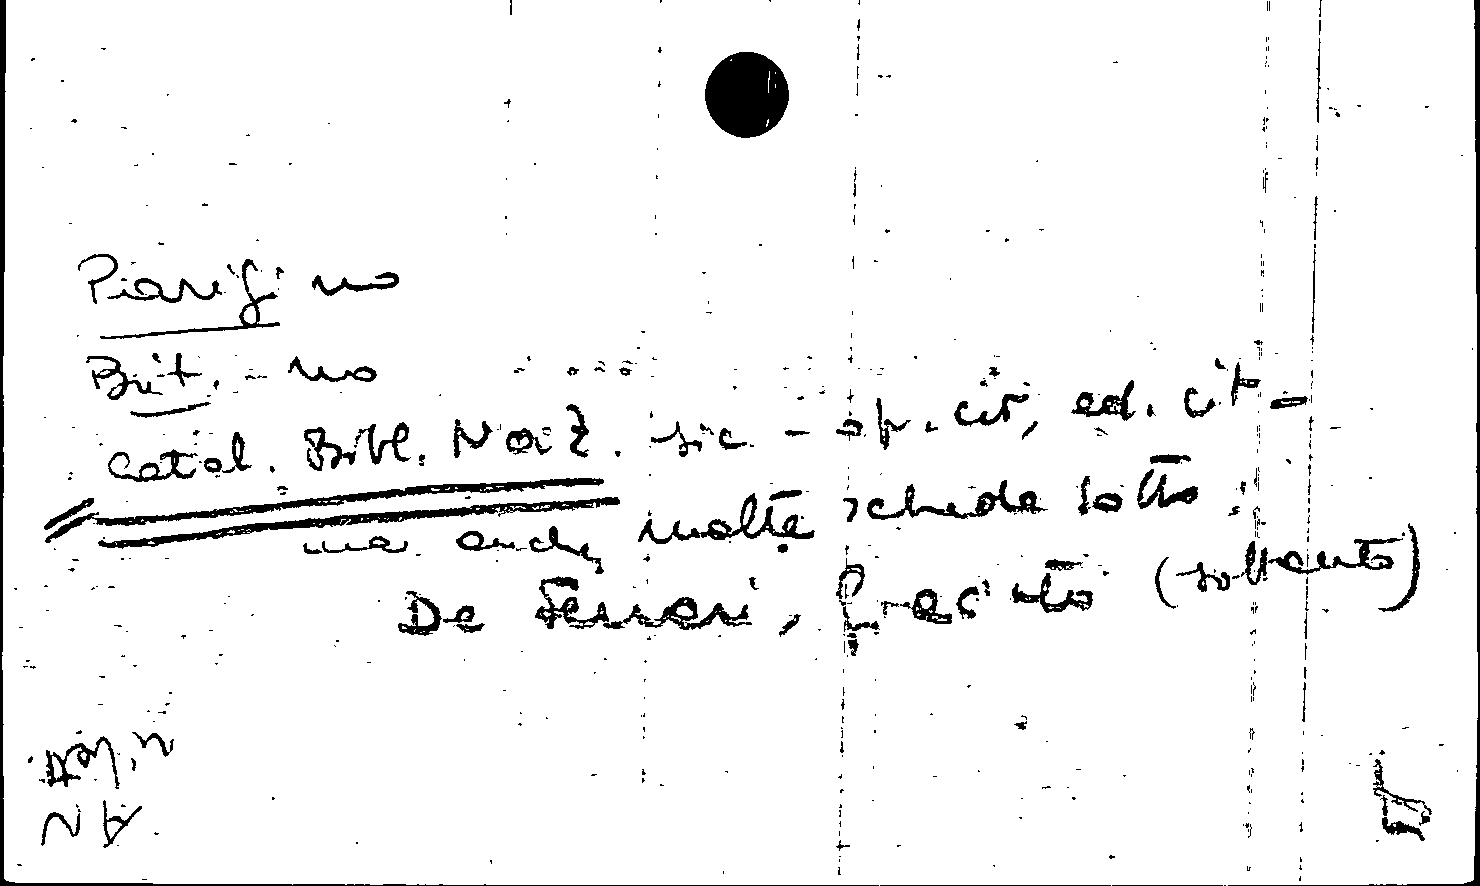 Parigi no
Brit. - no
Catal. Bibl. Naz. sic - op. cit, ed. cit -
ma anche molte schede sotto:
De Ferrari, Giacinto (soltanto)